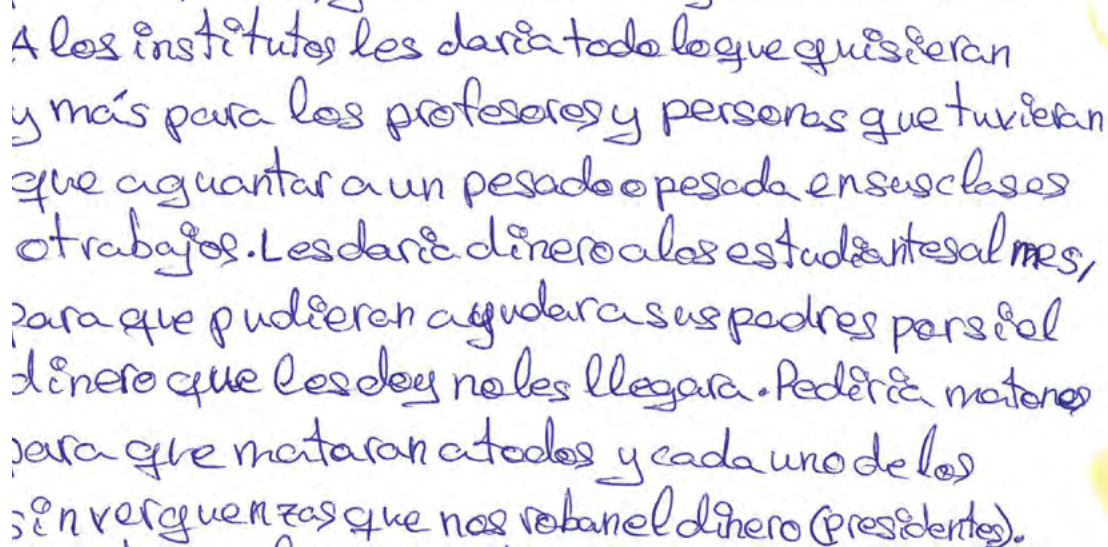 A los institutos les daría todo lo que quisieran
y más para los profesores y personas que tuvieran
que aguantar a un pesado o pesada en sus clases
o trabajos. Les daría dinero a los estudiantes al mes,
para que pudieran ayudar a sus padres por si el
dinero que les doy no les llegara. Pediría matones
para que mataran a todos y cada uno de los
sinverguenzas que nos roban el dinero (presidentes).